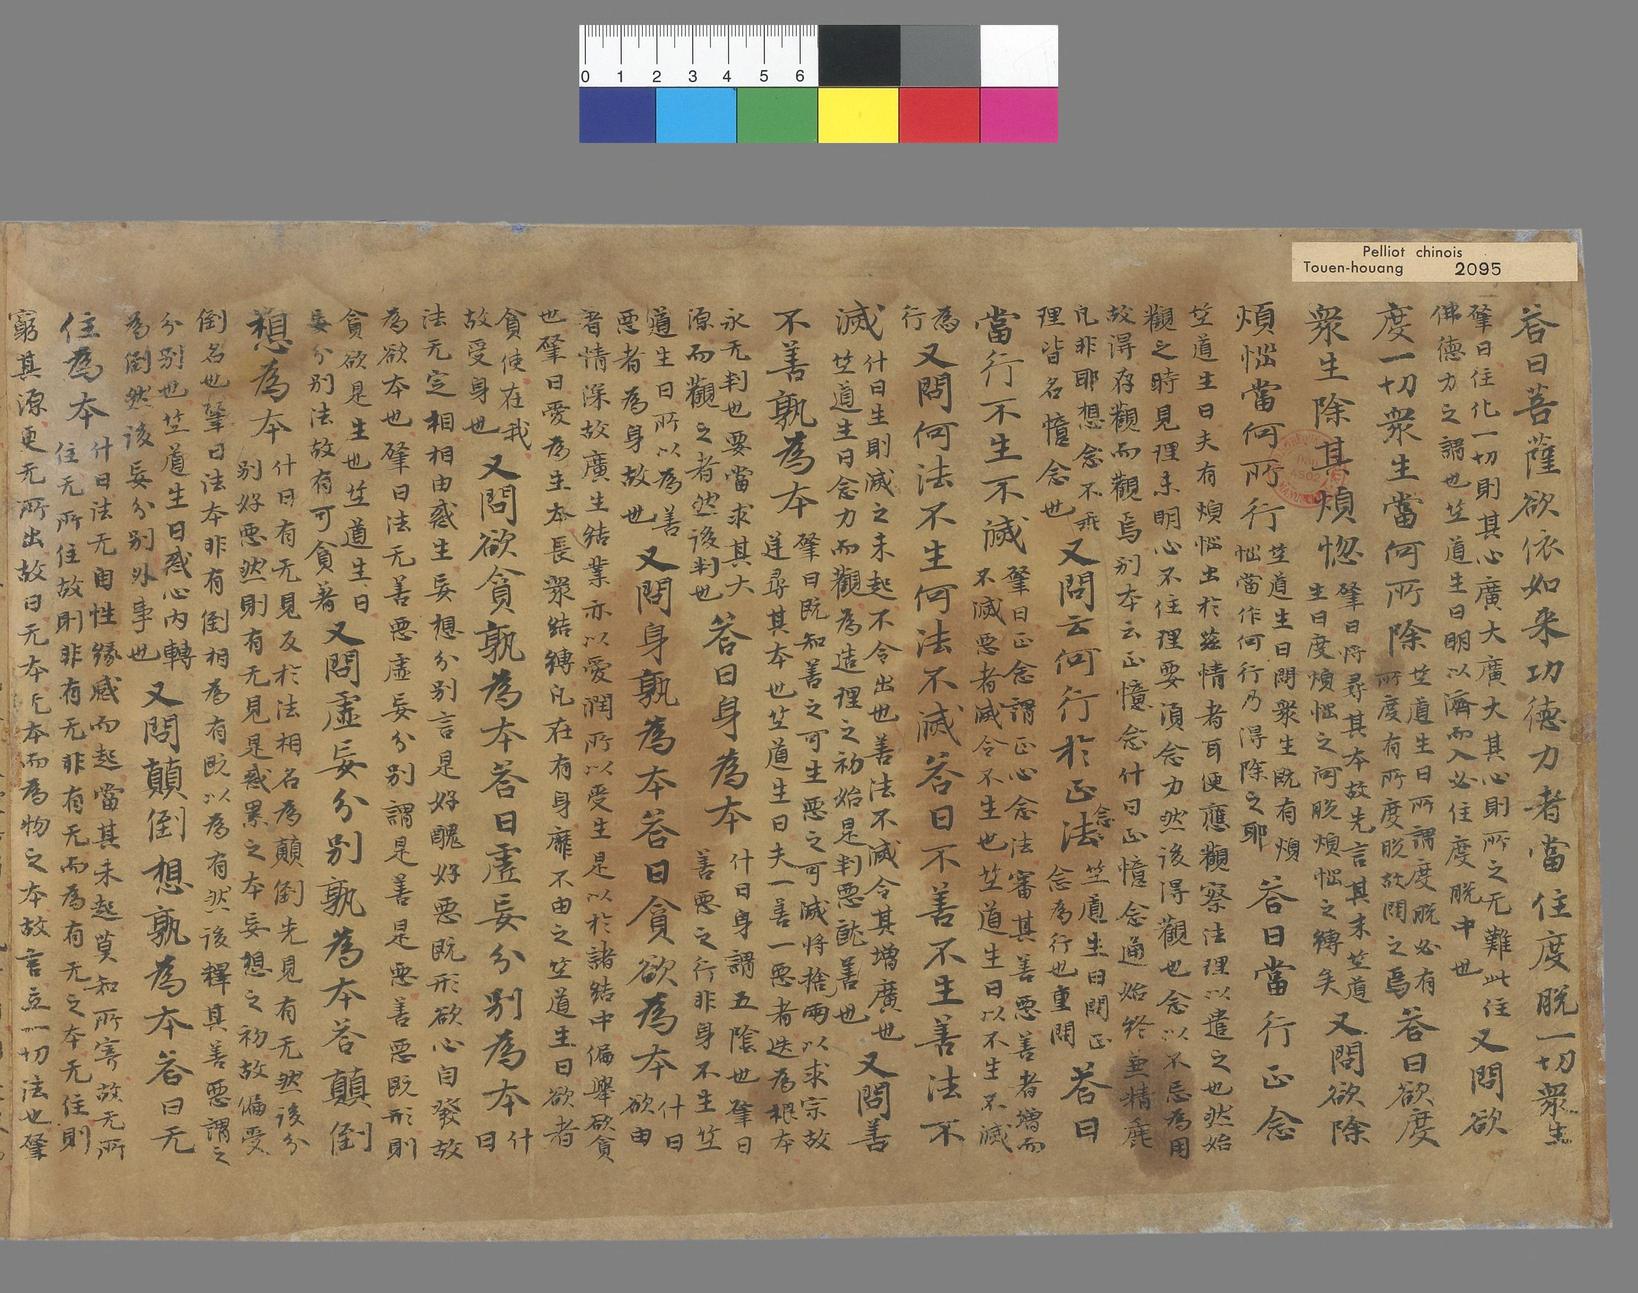 Pelliot chinois
Touen-houang 2095
0 1 2 3 4 5 6
荅曰菩薩欲依如来功德力者當住度脱一切衆生
肇曰住化一切則其心廣大廣大其心則所之无難此住
佛德力之謂也竺道生曰明以濟而入必住度脱中也
又問欲
度一切衆生當何所除
竺道生曰所謂度脱必有
所度有所度脱故問之焉
荅曰欲度
衆生除其煩惚
肇曰将尋其本故先言其末竺道
生曰度煩惱之河脱煩惱之縛矣
又問欲除
煩惱當何所行
竺道生曰問衆生既有煩
惱當作何行乃得除之耶
荅曰當行正念
竺道生曰夫有煩惱出於兹情者耳便應觀察法理以遣之也然始
觀之時見理未明心不住理要湏念力然後得觀也念以不忘為用
故得存觀而觀焉别本云正憶念什曰正憶念通始終兼精麁
凡非耶想念不乖
理皆名憶念也
又問云何行於正念法
竺道生曰問正
念為行也重問
荅曰
當行不生不滅
肇曰正念謂正心念法審其善惡善者增而
不滅惡者滅令不生也竺道生曰以不生不滅
為
行
又問何法不生何法不滅荅曰不善不生善法不
滅
什曰生則滅之未起不令出也善法不滅令其增廣也
竺道生曰念力而觀為造理之初始是判惡䏻善也
又問善
不善孰為本
肇曰既知善之可生惡之可滅将捨兩以求宗故
逆尋其本也竺道生曰夫一善一惡者迭為根本
永无判也要當求其大
源而觀之者然後判也
荅曰身為本
什曰身謂五陰也肇曰
善惡之行非身不生竺
道生曰所以為善
惡者為身故也
又問身孰為本荅曰貪欲為本
什曰
欲由
者情深故廣生結業亦以愛潤所以受生是以於諸結中偏舉欲貪
也肇曰愛為生本長衆結縛凡在有身靡不由之竺道生曰欲者
貪使在我
故受身也
又問欲貪孰為本荅曰虛妄分别為本
什
曰
法无定相相由惑生妄想分别言是好醜好惡既形欲心自發故
為欲本也肇曰法无善惡虛妄分别謂是善是惡善惡既形則
貪欲是生也竺道生曰
妄分别法故有可貪著
又問虛妄分别孰為本荅顛倒
想為本
什曰有无見及於法相名為顛倒先見有无然後分
别好惡然則有无見是惑累之本妄想之初故偏受
倒名也肇曰法本非有倒相為有既以為有然後釋其善惡謂之
分别也竺道生曰惑心内轉
為倒然後妄分别外事也
又問顛倒想孰為本荅曰无
住為本
什曰法无自性縁感而起當其未起莫知所寄故无所
住无所住故則非有无非有无而為有无之本无住則
窮其源更无所出故曰无本无本而為物之本故言立一切法也肇